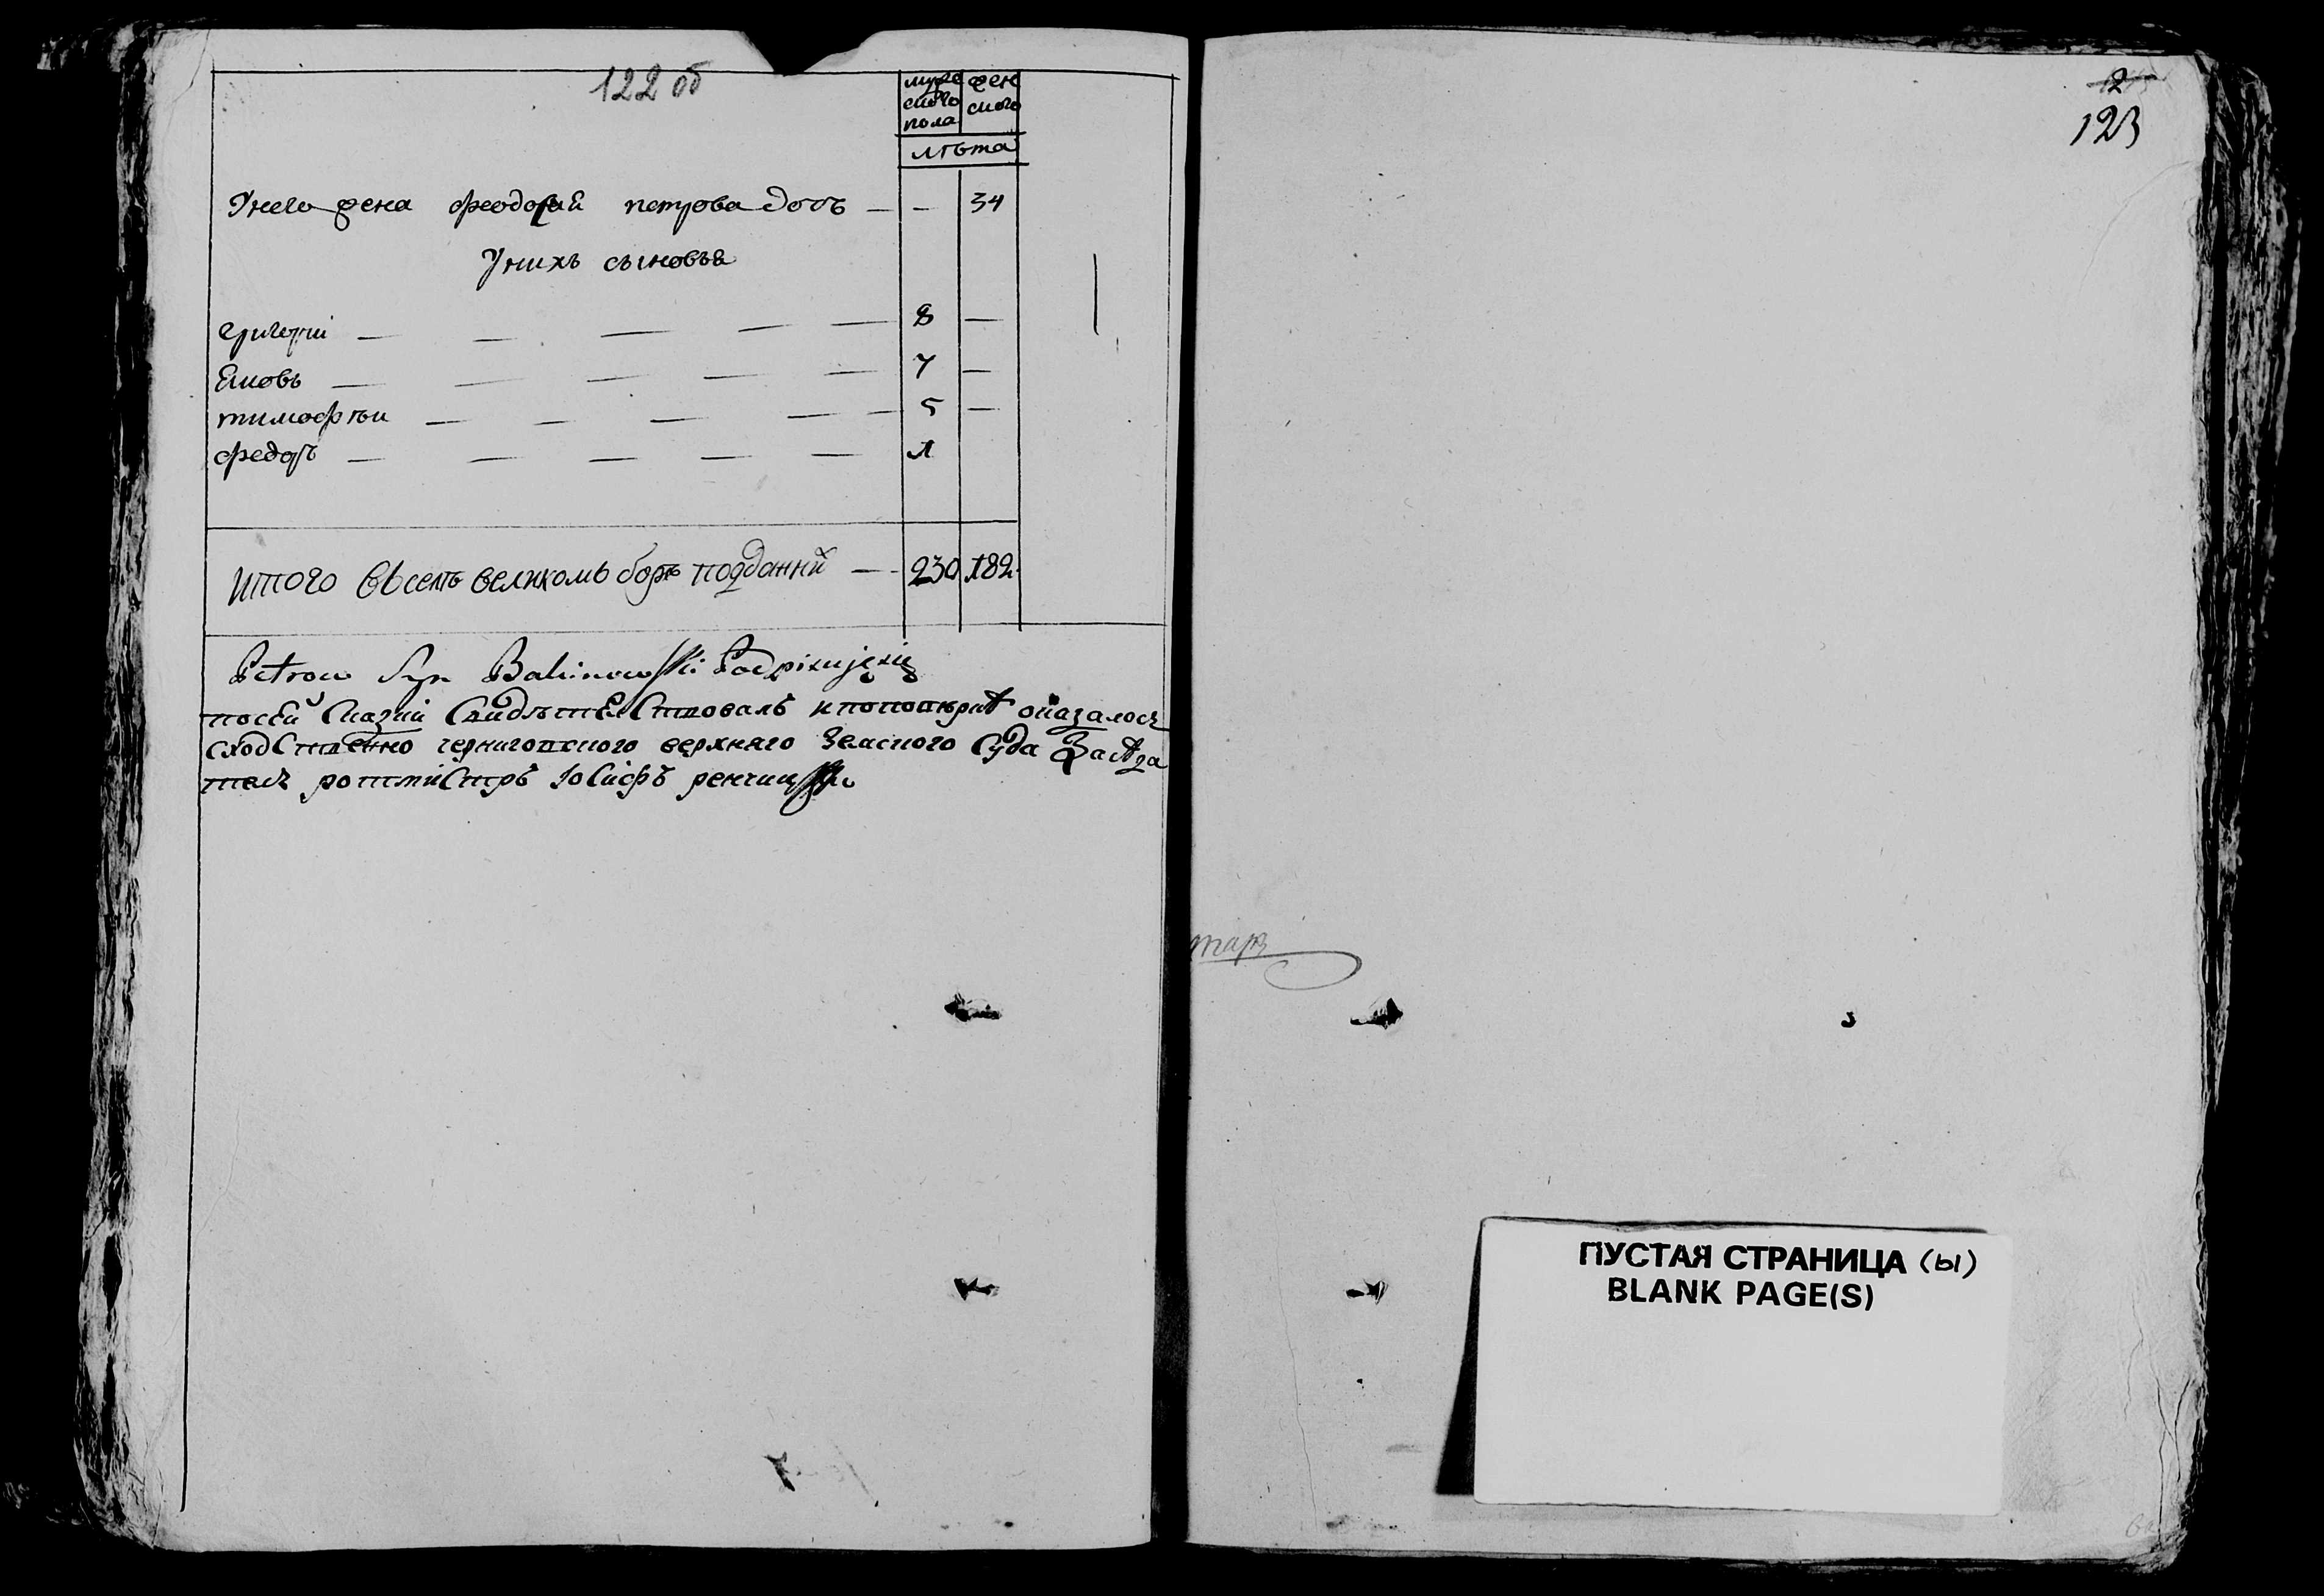 122 об
муже
ского
пола
жен
ского
лѣта
Унего жена феодосия петрова дочь — — 34
Унихъ сыновья
григорий — — — — 8 —
Яковъ — — — — — 7 —
тимофѣи — — — — — 5 —
федоръ — — — — — 1
итого въселѣ великомъ борѣ подданнихъ — 230 182
Petrow Syn Podpisuję się
посей Сказки Свидѣтелствовалъ оказалось
сходственно черниговского верхняго Земского Суда Заседа
тель ротмистръ Іосифъ
2
123
тарь
ПУСТАЯ СТРАНИЦА (ы)
BLANK PAGE(S)